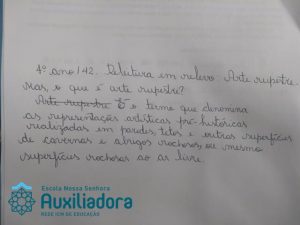 4º ano 142. Releitura em relevo Arte rupestre
mas, o que é arte rupestre?
Arte rupestre É o termo que denomina
as representações artísticas pré-históricas
realizadas em paredes, tetos e outras superfícies
de cavernas e abrigos rochosos, ou mesmo
superfícies rochosas ao ar livre.
Escola Nossa Senhora
Auxiliadora
REDE ICM DE EDUCAÇÃO